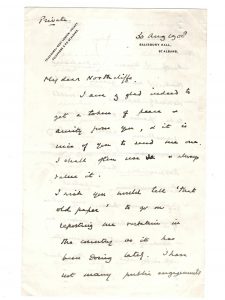 Private
30 Aug 1908
SALISBURY HALL,
ST ALBANS.
My dear Northcliffe
I am glad indeed to
get a token of peace &
amity from you, & it is
nice of you to send me one.
I shall often use it & always
value it.
I wish you would tell "that
old paper" to go on
reporting me verbatim in
the country as it has
been doing lately. I have
not many public engagements